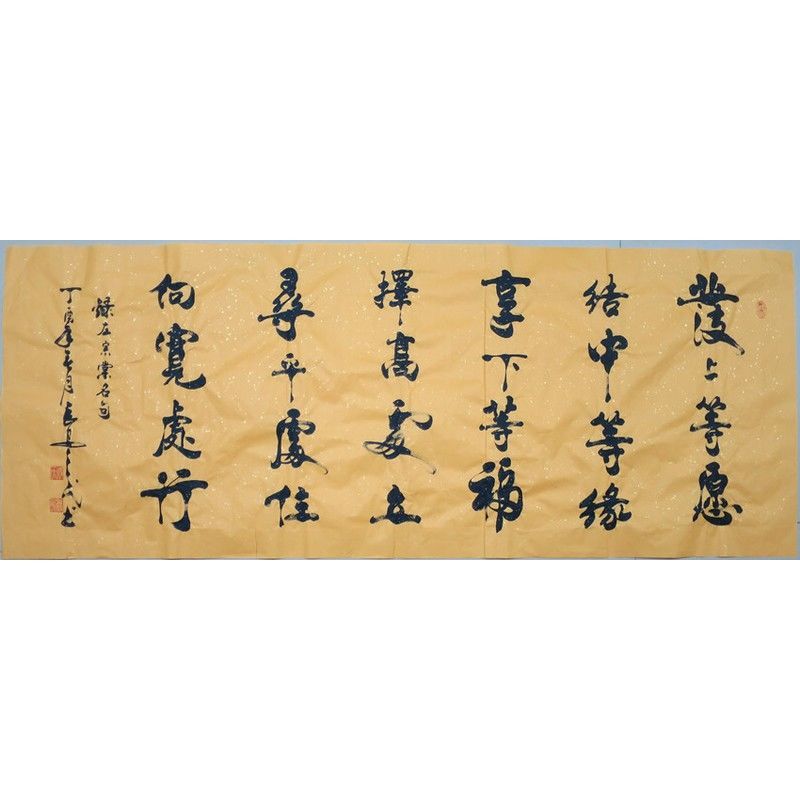 發上等愿
结中等缘
享下等福
擇高處立
尋平處住
向寬處行
錄左宗棠名句